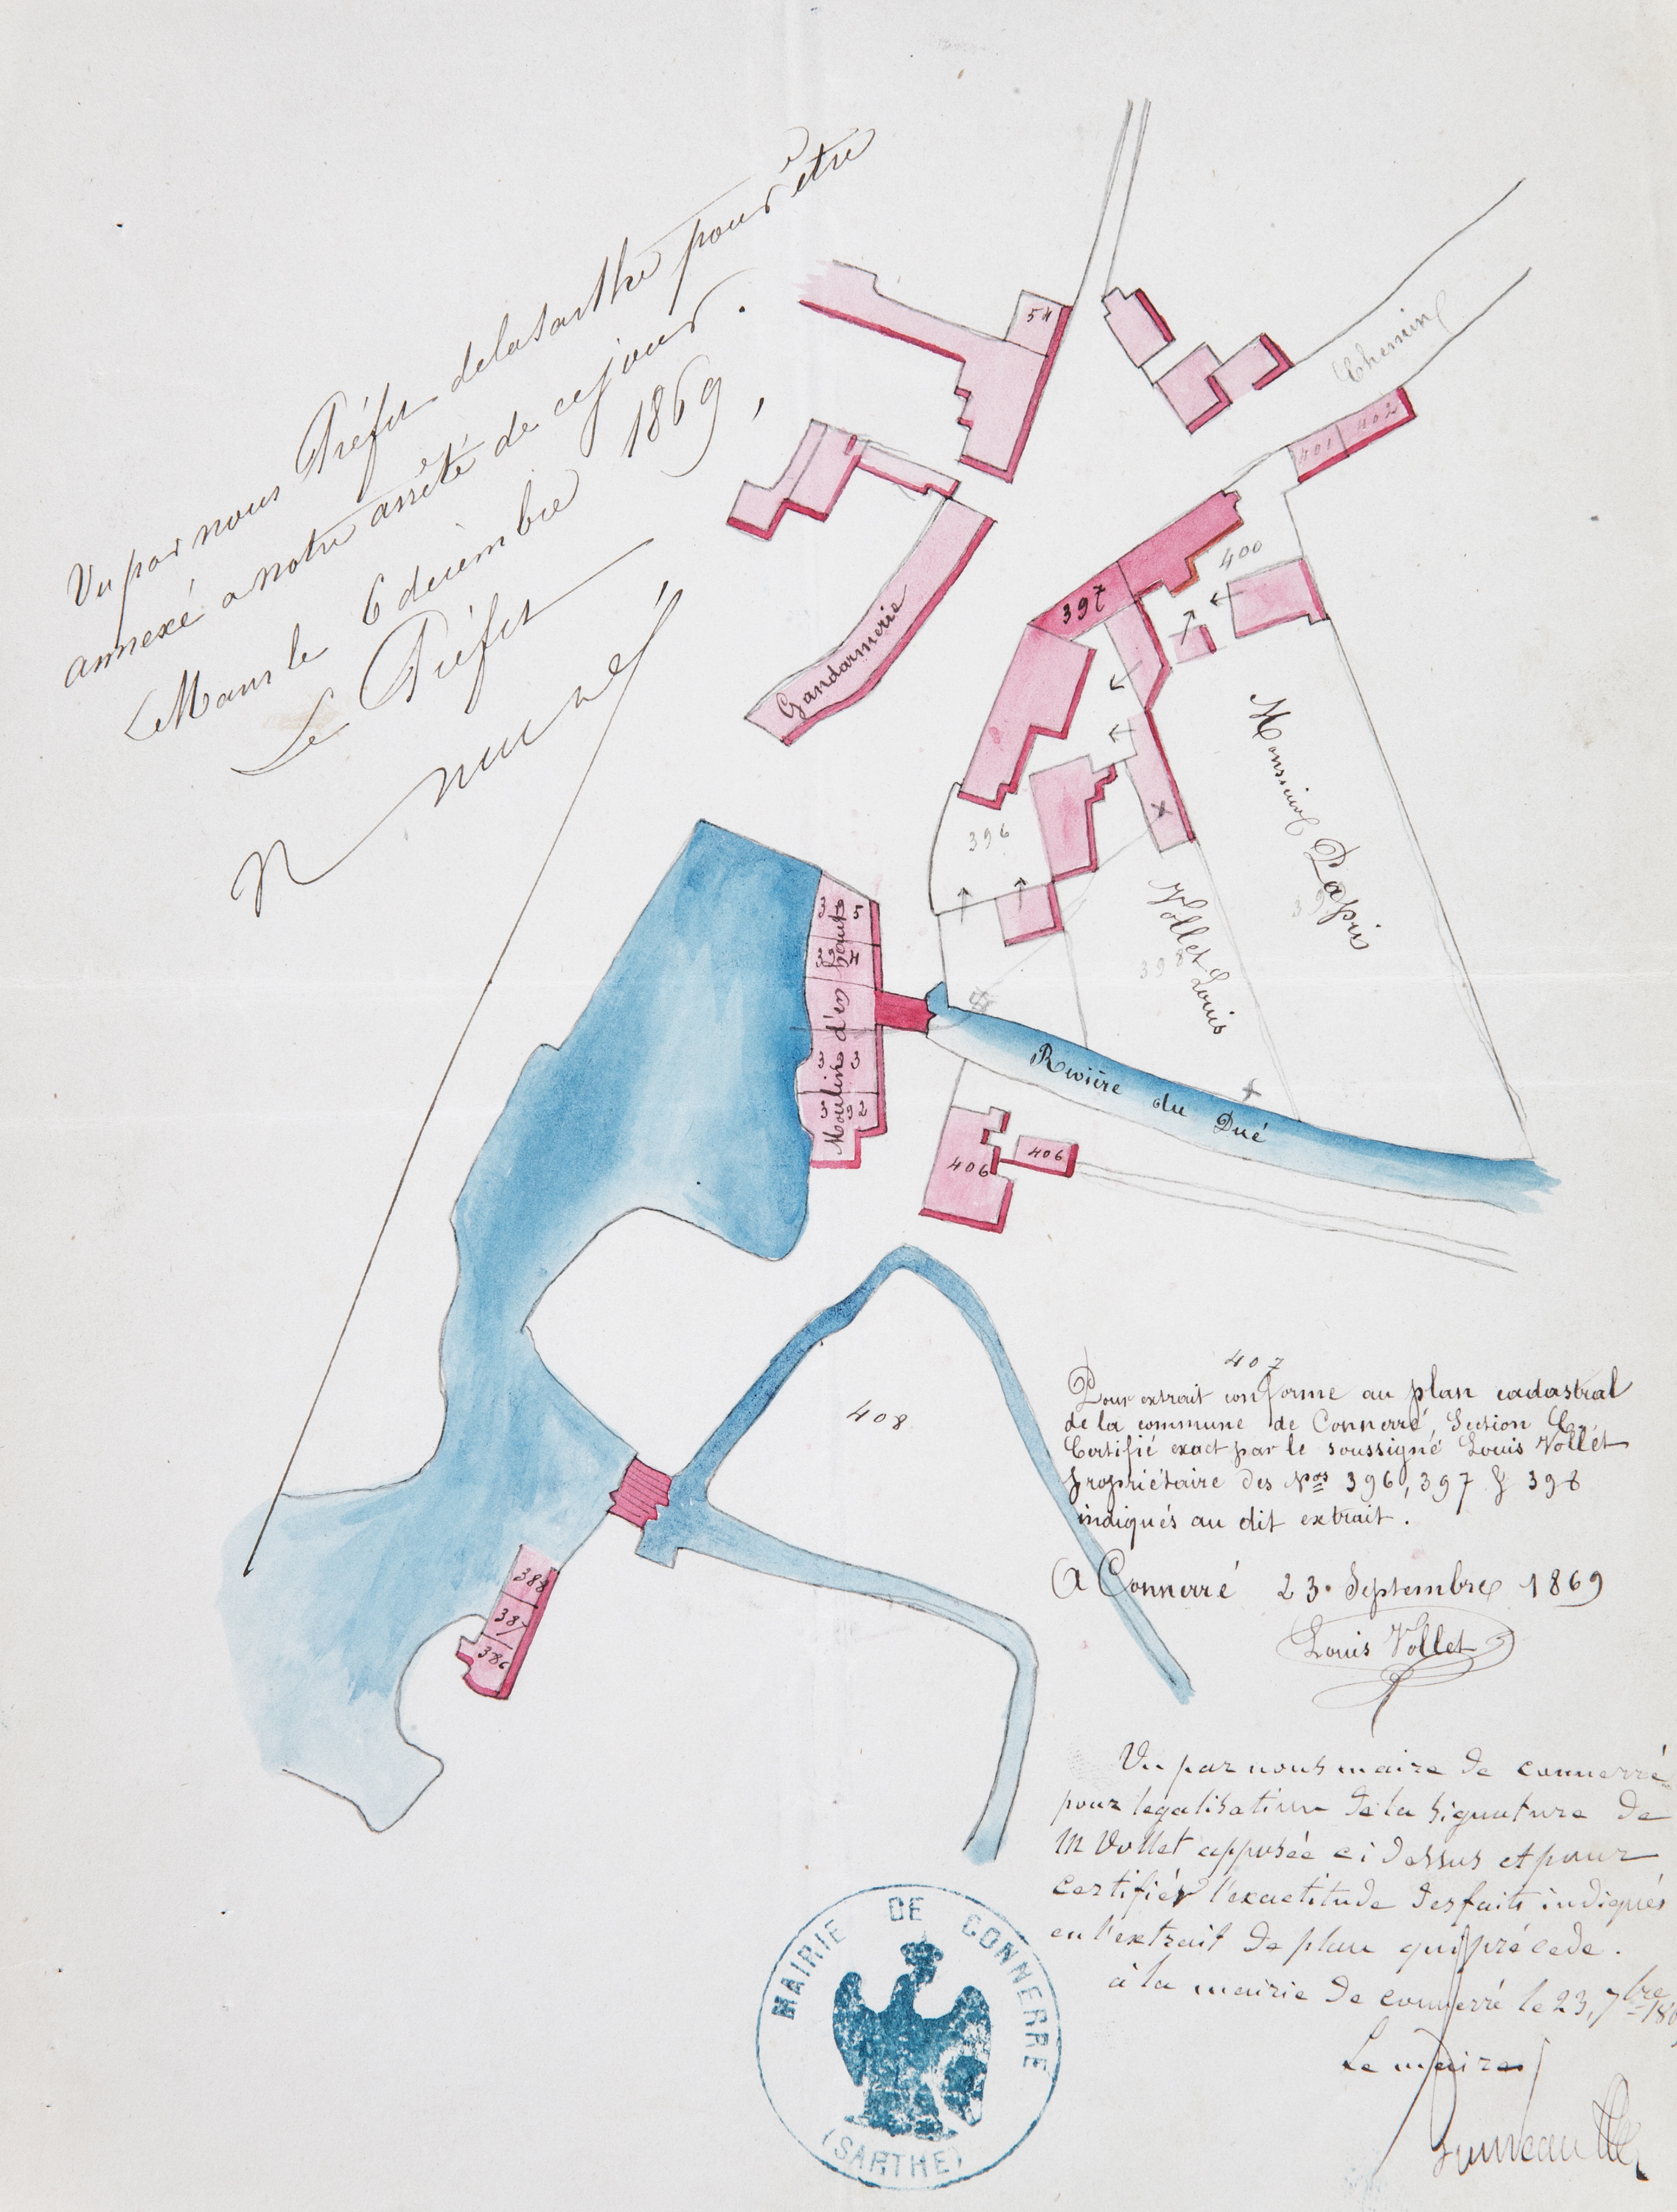 Vu par nous Préfet de la Sarthe pour être
annexé a notre arrêté de ce jour.
Le Mans le 6 decembre 1869,
Le Préfet
54
Chemin
401 402
400
397
Gandarmerie
Monsieur Papin
396
Vollet Louis
398
3 5
3 4
Moulin d'en haut
3 3
3 92
Rivière du Dué
406
406
407
408
388
387
386
Pour extrait conforme au plan cadastral
de la commune de Connerré, Section
Certifié exact par le soussigné Louis Vollet
propriétaire des Nos 396, 397 & 398
indiqués au dit extrait.
A Connerré 23. Septembre 1869
Louis Vollet
Vu par nous maire de connerré
pour legalisation de la signature de
M Vollet apposée ci dessus et pour
certifier l'exactitude des faits indiqués
en l'extrait de plan qui précede.
à la mairie de connerré le 23, 7bre 186
Le maire
MAIRIE DE CONNERRE
(SARTHE)